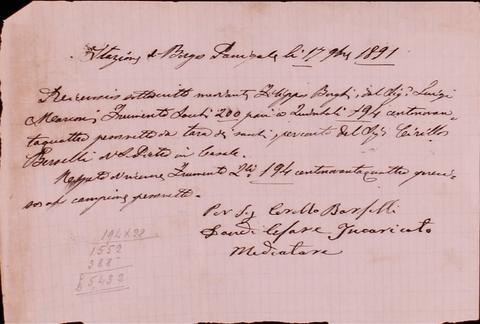 Stazione di Borgo Panigale li 17 9bre 1891
Ricevuto io sottoscritto mercante Filippo Borghi, dal Sig. Luigi
Marconi Frumento Sacchi 200 pari a Quintali 194 centonovan-
taquattro pesonetto da tara di sacchi, per conto del Sig. Cirillo
Borselli di S. Pietro in Casale.
Frumento Qli 194 centonovantaquattro
campione
Per Sig Cerillo Borselli
Cesare Incaricato
Mediatore
194 x 28
1552
388
5432